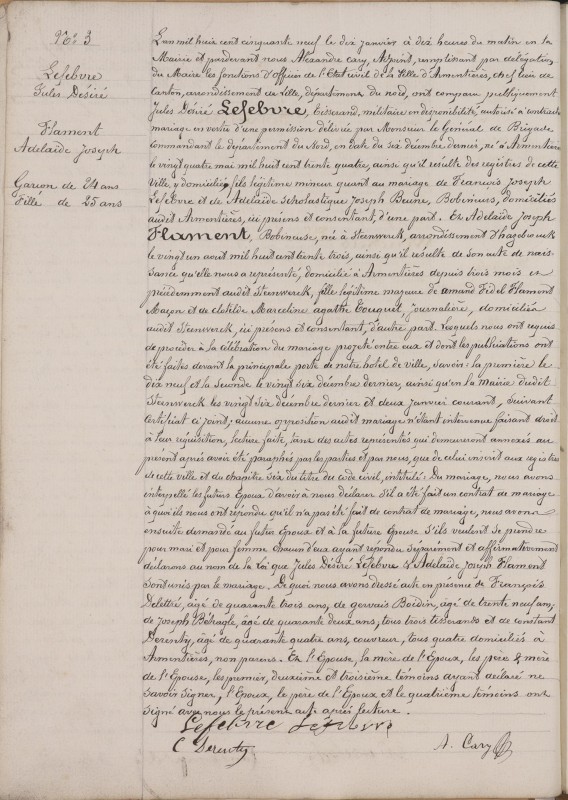 N.o 3
Lefebvre
Jules Désiré
Flament
Adelaïde Joseph
Garçon de 24 ans
Fille de 25 ans
L'an mil huit cent cinquante neuf le dix janvier à dix heures du matin en la
Mairie et pardevant nous Alexandre Cary, Adjoint, remplissant par délégation
du Maire les fonctions d'officier de l'Etat civil de la Ville d'Armentières, chef lieu de
Canton, arrondissement de Lille, département du nord, ont comparu publiquement
Jules Désiré Lefebvre, Tisserand, militaire en disponibilité, autorisé à contracter
mariage en vertu d'une permission délivrée par Monsieur le Général de Brigade
Commandant le département du Nord, en date du six décembre dernier, né à Armentières
le vingt quatre mai mil huit cent trente quatre, ainsi qu'il résulte des registres de cette
Ville, y domicilié, fils légitime mineur quant au mariage de François Joseph
Lefebvre et de Adelaïde Scholastique Joseph Beune, Bobineurs, domiciliés
audit Armentières, ici présens et consentant, d'une part. Et Adelaïde Joseph
Flament, Bobineuse, né à Steenwerck, arrondissement d'hazebrouck
le vingt un aout mil huit cent trente trois, ainsi qu'il résulte de son acte de nais-
sance qu'elle nous a représenté, domicilié à Armentières depuis trois mois et
précédemment audit Steenwerck, fille légitime majeure de amand Fidel Flament
Maçon et de Clotilde Marceline agathe Touquet, journalière, domiciliés
audit Steenwerck, ici présens et consentant, d'autre part. Lesquels nous ont requis
de procéder à la célébration du mariage projeté entre eux et dont les publications ont
été faites devant la principale porte de notre hotel de ville, savoir: la première le
dix neuf et la seconde le vingt six décembre dernier, ainsi qu'en la Mairie dudit
Steenwerck les vingt six décembre dernier et deux janvier courant, suivant
certificat ci joint; aucune opposition audit mariage n'étant intervenue faisant droit
à leur réquisition, lecture faite, tant des actes représentés qui demeureront annexés au
présent après avoir été paraphés par les parties et par nous, que de celui inscrit aux registres
de cette ville et du chapitre six du titre du code civil, intitulé: Du mariage, nous avons
interpellé les futurs Epoux d'avoir à nous déclarer s'il a été fait un contrat de mariage
à quoi ils nous ont répondu qu'il n'a pas été fait de contrat de mariage, nous avons
ensuite demandé au futur Epoux et à la future Epouse s'ils veulent se prendre
pour mari et pour femme chacun d'eux ayant répondu séparément et affirmativement
déclarons au nom de la loi que Jules Désiré Lefebvre & Adelaïde Joseph Flament
sont unis par le mariage. De quoi nous avons dressé acte en présence de François
Delettré, âgé de quarante trois ans, de gervais Boidin, âgé de trente neuf ans,
de Joseph Béhagle, âgé de quarante deux ans, tous trois tisserants et de Constant
Derenty, âgé de quarante quatre ans, couvreur, tous quatre domiciliés à
Armentières, non parens. Et l'Epouse, la mère de l'Epoux, les père & mère
de l'Epouse, les premier, deuxième et troisième témoins ayant déclaré ne
savoir signer, l'Epoux, le père de l'Epoux et le quatrième témoins ont
signé avec nous le présent acte après lecture.
Lefebvre Lefebvre
C Derenty A. Cary